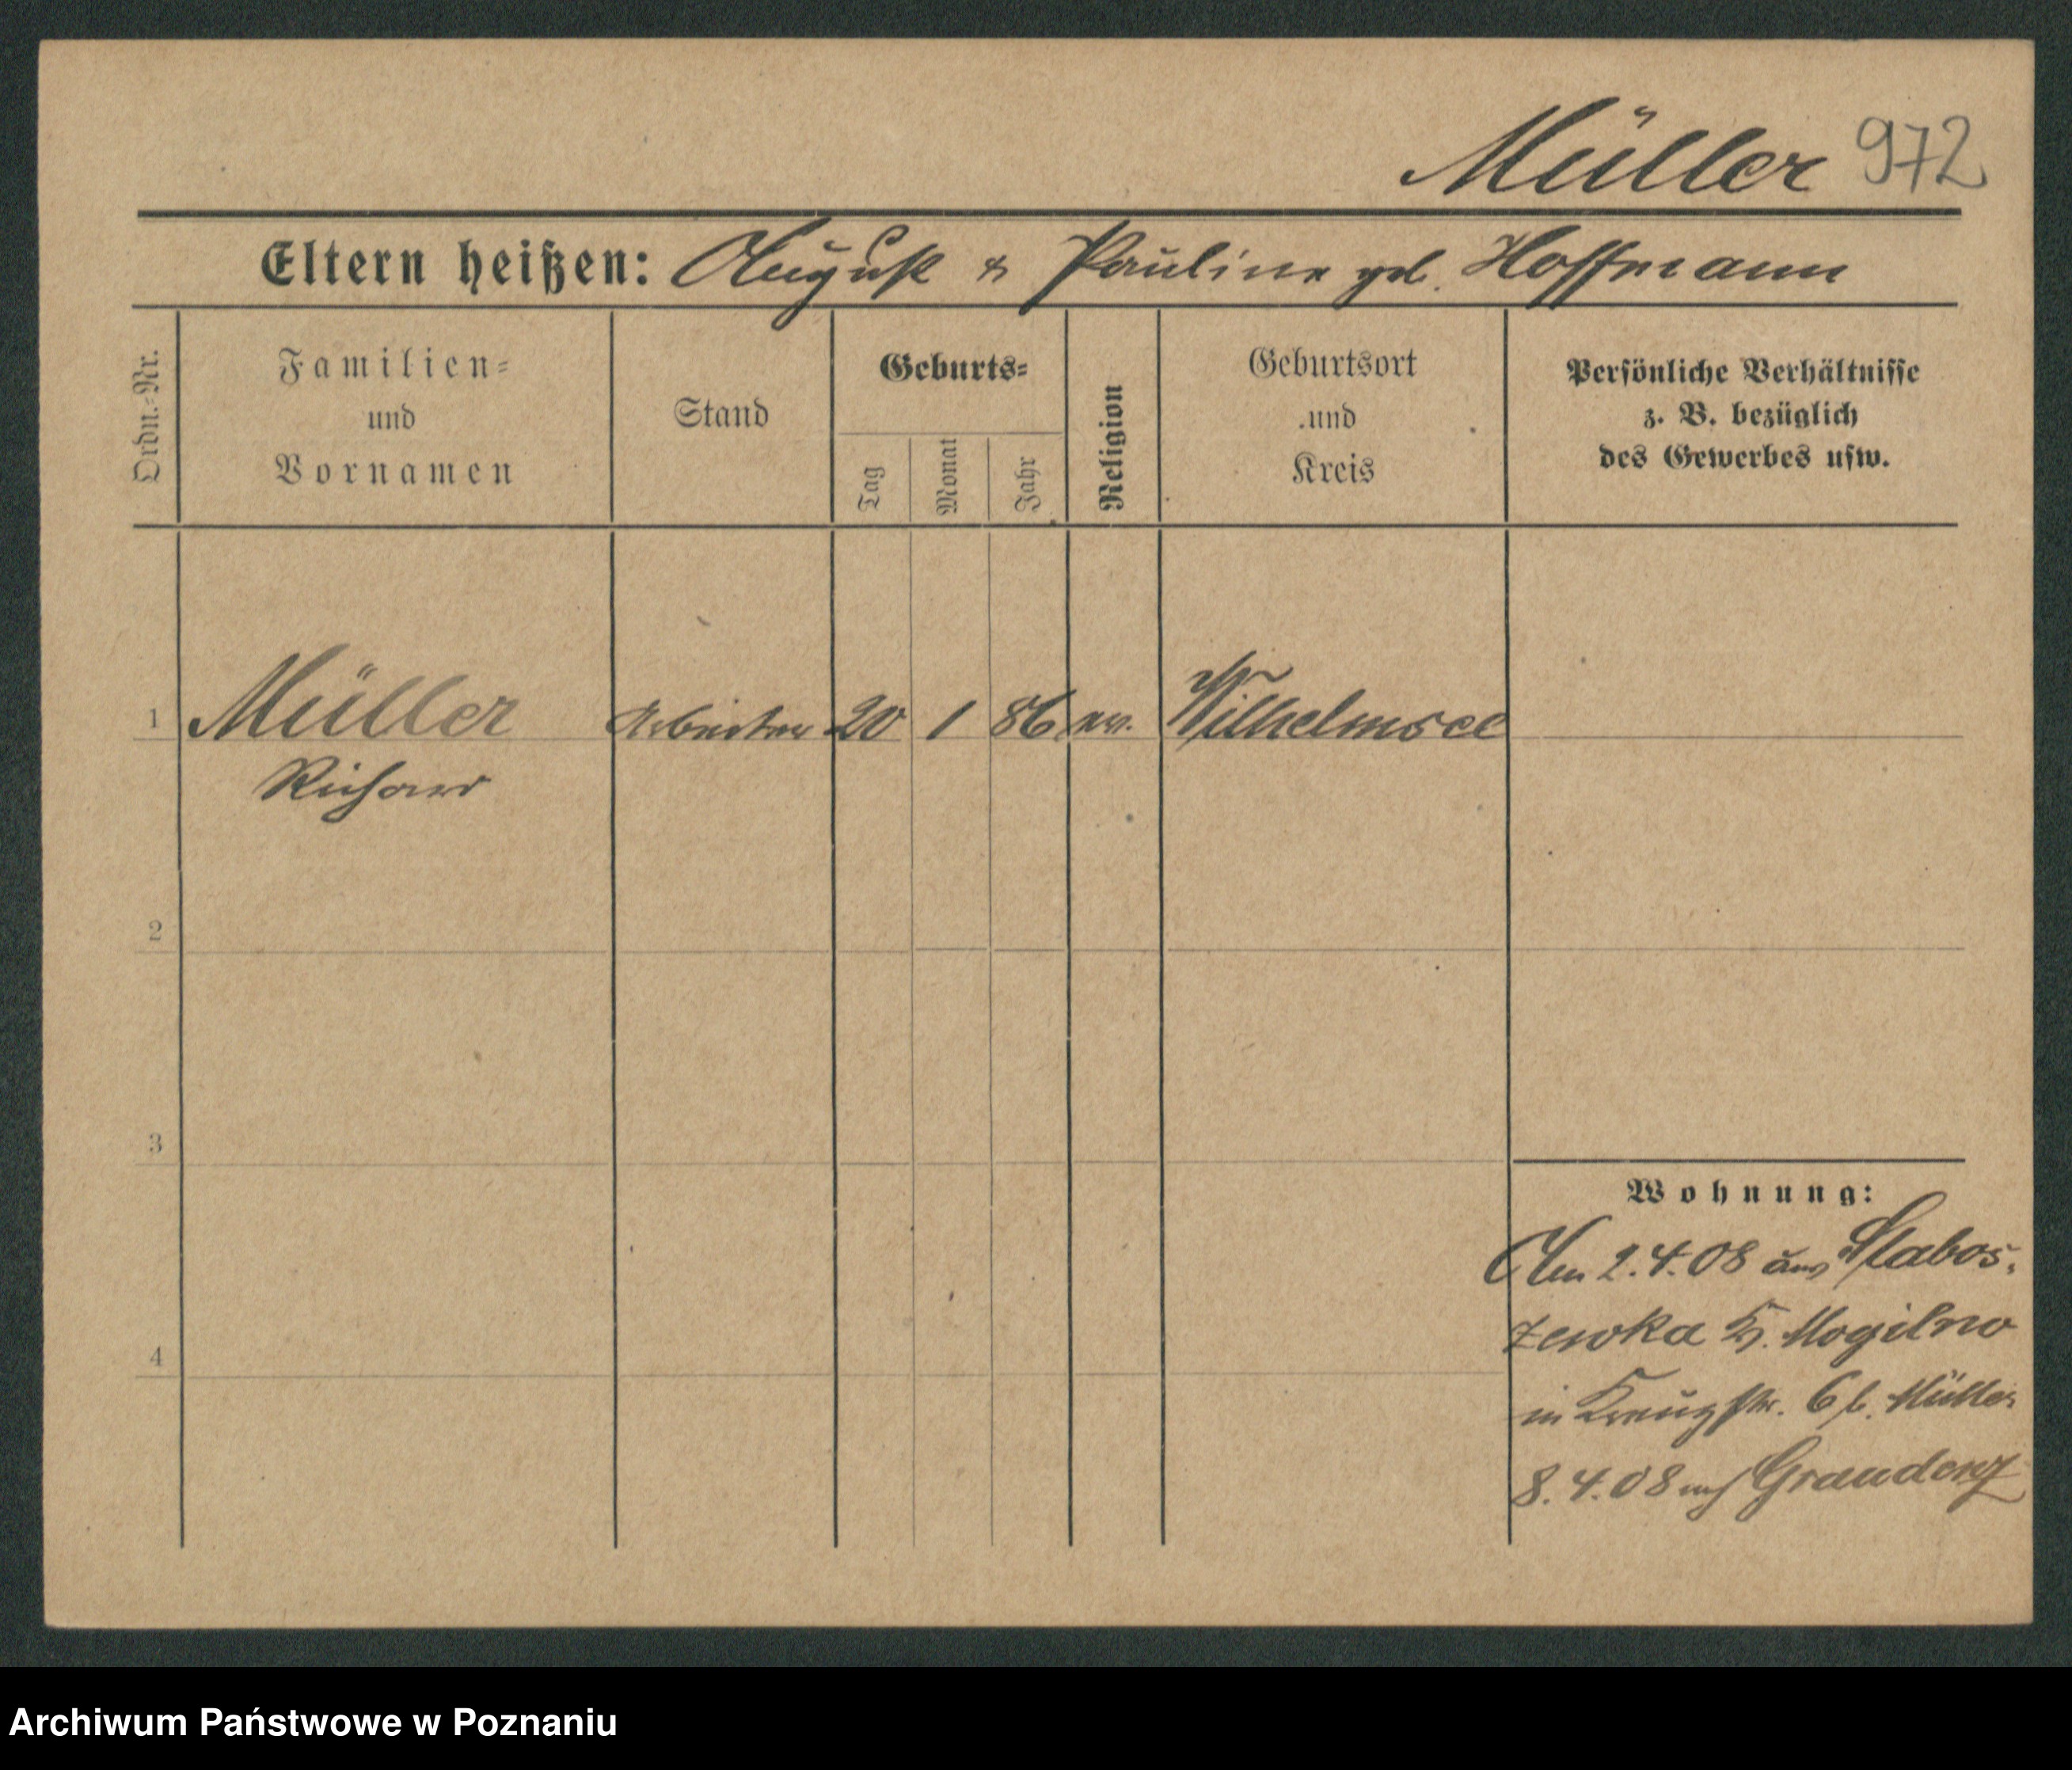 Müller 972
Eltern heißen: August & Pauline geb. Hoffmann
Ordn.-Nr.
Familien-
und
Vornamen
Stand
Geburts-
Tag
Monat
Jahr
Religion
Geburtsort
und
Kreis
Persönliche Verhältnisse
z. B. bezüglich
des Gewerbes usw.
1 Müller Arbeiter 20 1 86 ev. Wilhelmsee
Richard
2
3
4
Wohnung:
Am 2.4.08 aus Slabos-
zewka K. Mogilno
in Kreuzstr. 6 b. Müller
8.4.08 nach Graudenz
Archiwum Państwowe w Poznaniu